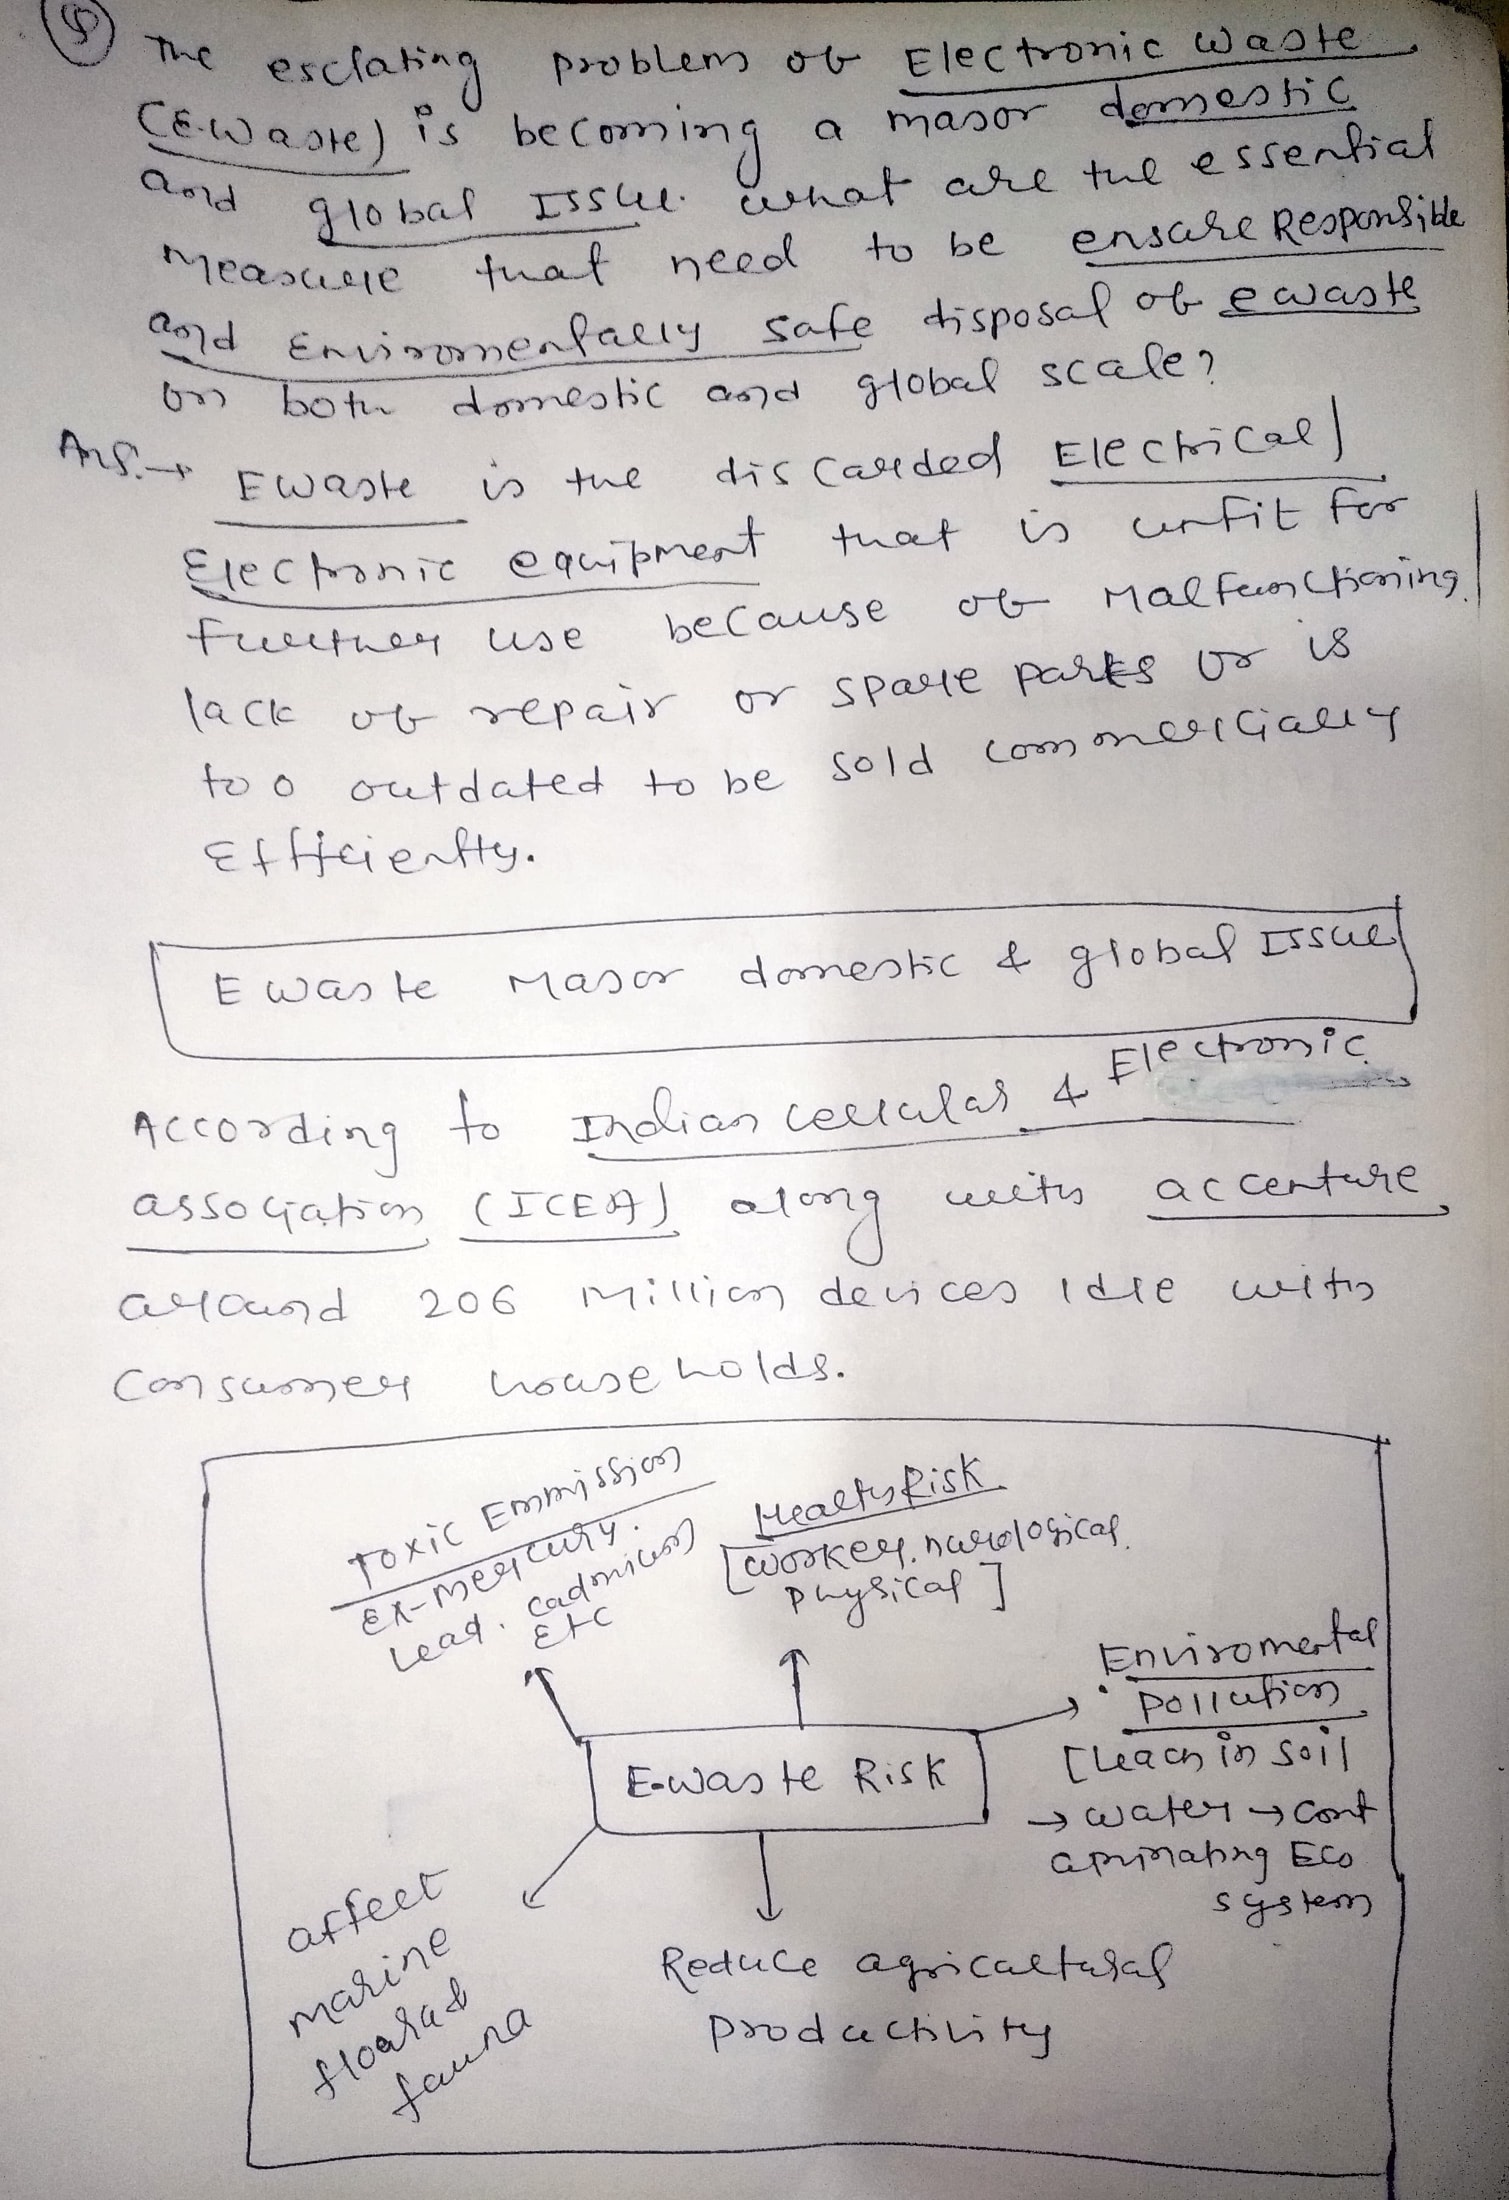 5
The esclating problem of Electronic Waste
(E-Waste) is becoming a major domestic
and global Issue. what are the essential
measure that need to be ensure Responsible
and Enviromentally safe disposal of e waste
on both domestic and global scale?
Ans. → E Waste is the discarded Electrical /
Electronic equipment that is unfit for
further use because of Malfunctioning
lack of repair or spare parts or is
too outdated to be sold commercially
Efficiently.
E waste Major domestic & global Issue
According to Indian cellular & Electronic
association (ICEA) along with accenture
around 206 Million devices idle with
Consumer households.
Toxic Emmission
Ex- mercury.
Lead. cadmium
Etc
Health Risk
[worker. nurological
physical]
Enviromental
Pollution
[Leach in soil
→ water → cont
aminating Eco
system
E-waste Risk
affect
marine
fauna
Reduce agricultural
Productivity